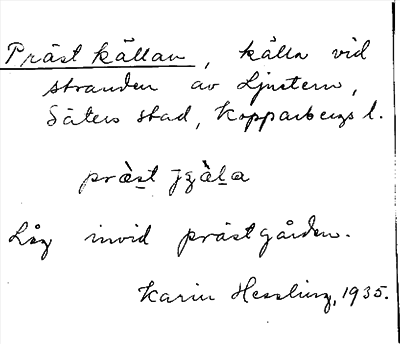 Prästkällan, källa vid
stranden av Ljustern,
Säters stad, Kopparbergs l.
prɛ̀st
Låg invid prästgården.
Karin Hessling, 1935.